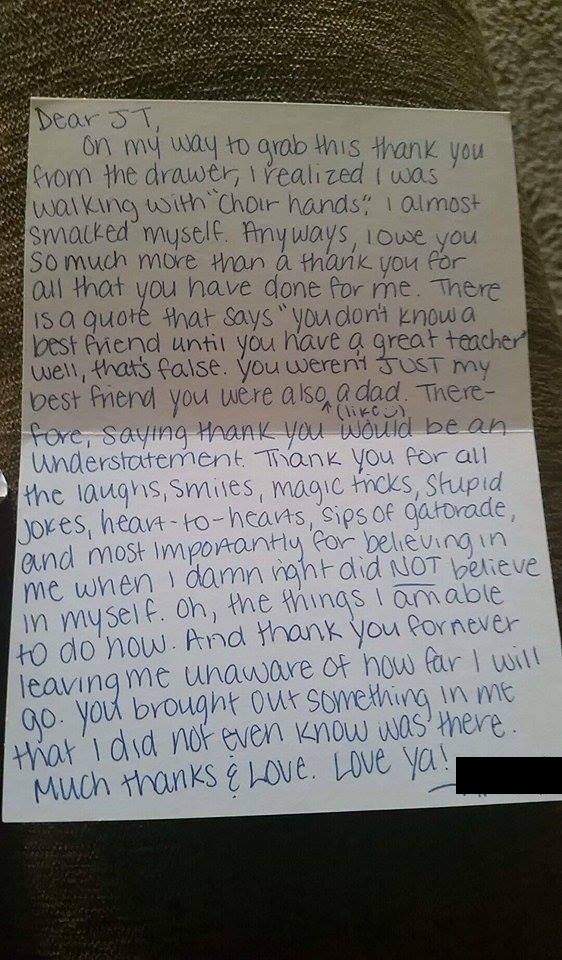 Dear JT,
On my way to grab this thank you
from the drawer, I realized I was
walking with "choir hands". I almost
smacked myself. Anyways, I owe you
so much more than a thank you for
all that you have done for me. There
is a quote that says "you don't know a
best friend until you have a great teacher"
well, that's false. You weren't JUST my
best friend you were also a dad. There-
↑(like☺)
fore, saying thank you would be an
understatement. Thank you for all
the laughs, smiles, magic tricks, stupid
jokes, heart-to-hearts, sips of gatorade,
and most importantly for believing in
me when I damn right did NOT believe
in myself. Oh, the things I am able
to do now. And thank you for never
leaving me unaware of how far I will
go. You brought out something in me
that I did not even know was there.
Much thanks & Love. Love ya!